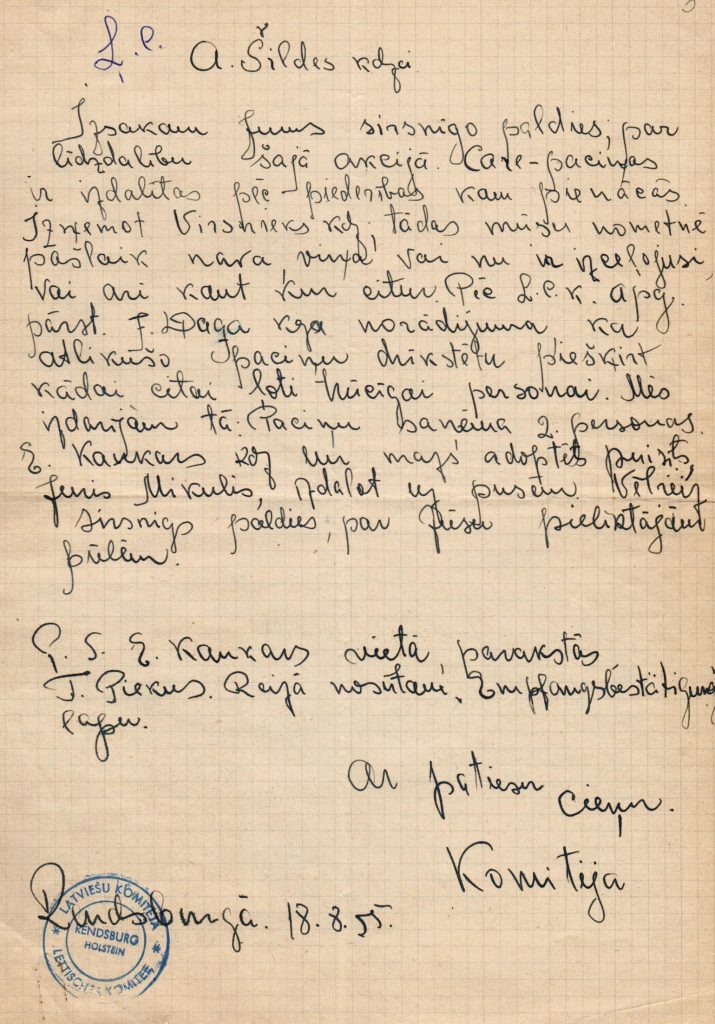 Ļ. c. A. Šildes kdzei.
Izsakam Jums sirsnīgo paldies, par
līdzdalību šajā akcijā. Care-paciņas
ir izdalītas pēc-piederības kam pienācās.
Izņemot Virsnieks kdz, tādas mūsu nometnē
pašlaik nava, viņa vai nu ir izceļojusi,
vai arī kaut kur citur. Pēc L.C.K. apg.
pārst. J. Daga kga norādījuma ka
atlikušo paciņu drīkstētu piešķirt
kādai citai ļoti trūcīgai personai. Mēs
izdarījām tā. Paciņu saņēma 2. personas.
E. Kaukars kdz un mazs adoptēts puisīts,
Juris Mikulis, izdalot uz pusēm. Vēlreiz
sirsnīgo paldies, par Jūsu pieliktājām
pūlēm.
P. S. E. Kaukars vietā, parakstās
T. Piekus. Reizē nosūtam, Empfangsbestätigung
lapu.
Ar patiesu cieņu.
Komiteja
Rendsburgā. 18. 8. 55.
LATVIEŠU KOMITEJA
RENDSBURG
HOLSTEIN
LETTISCHES KOMITEE